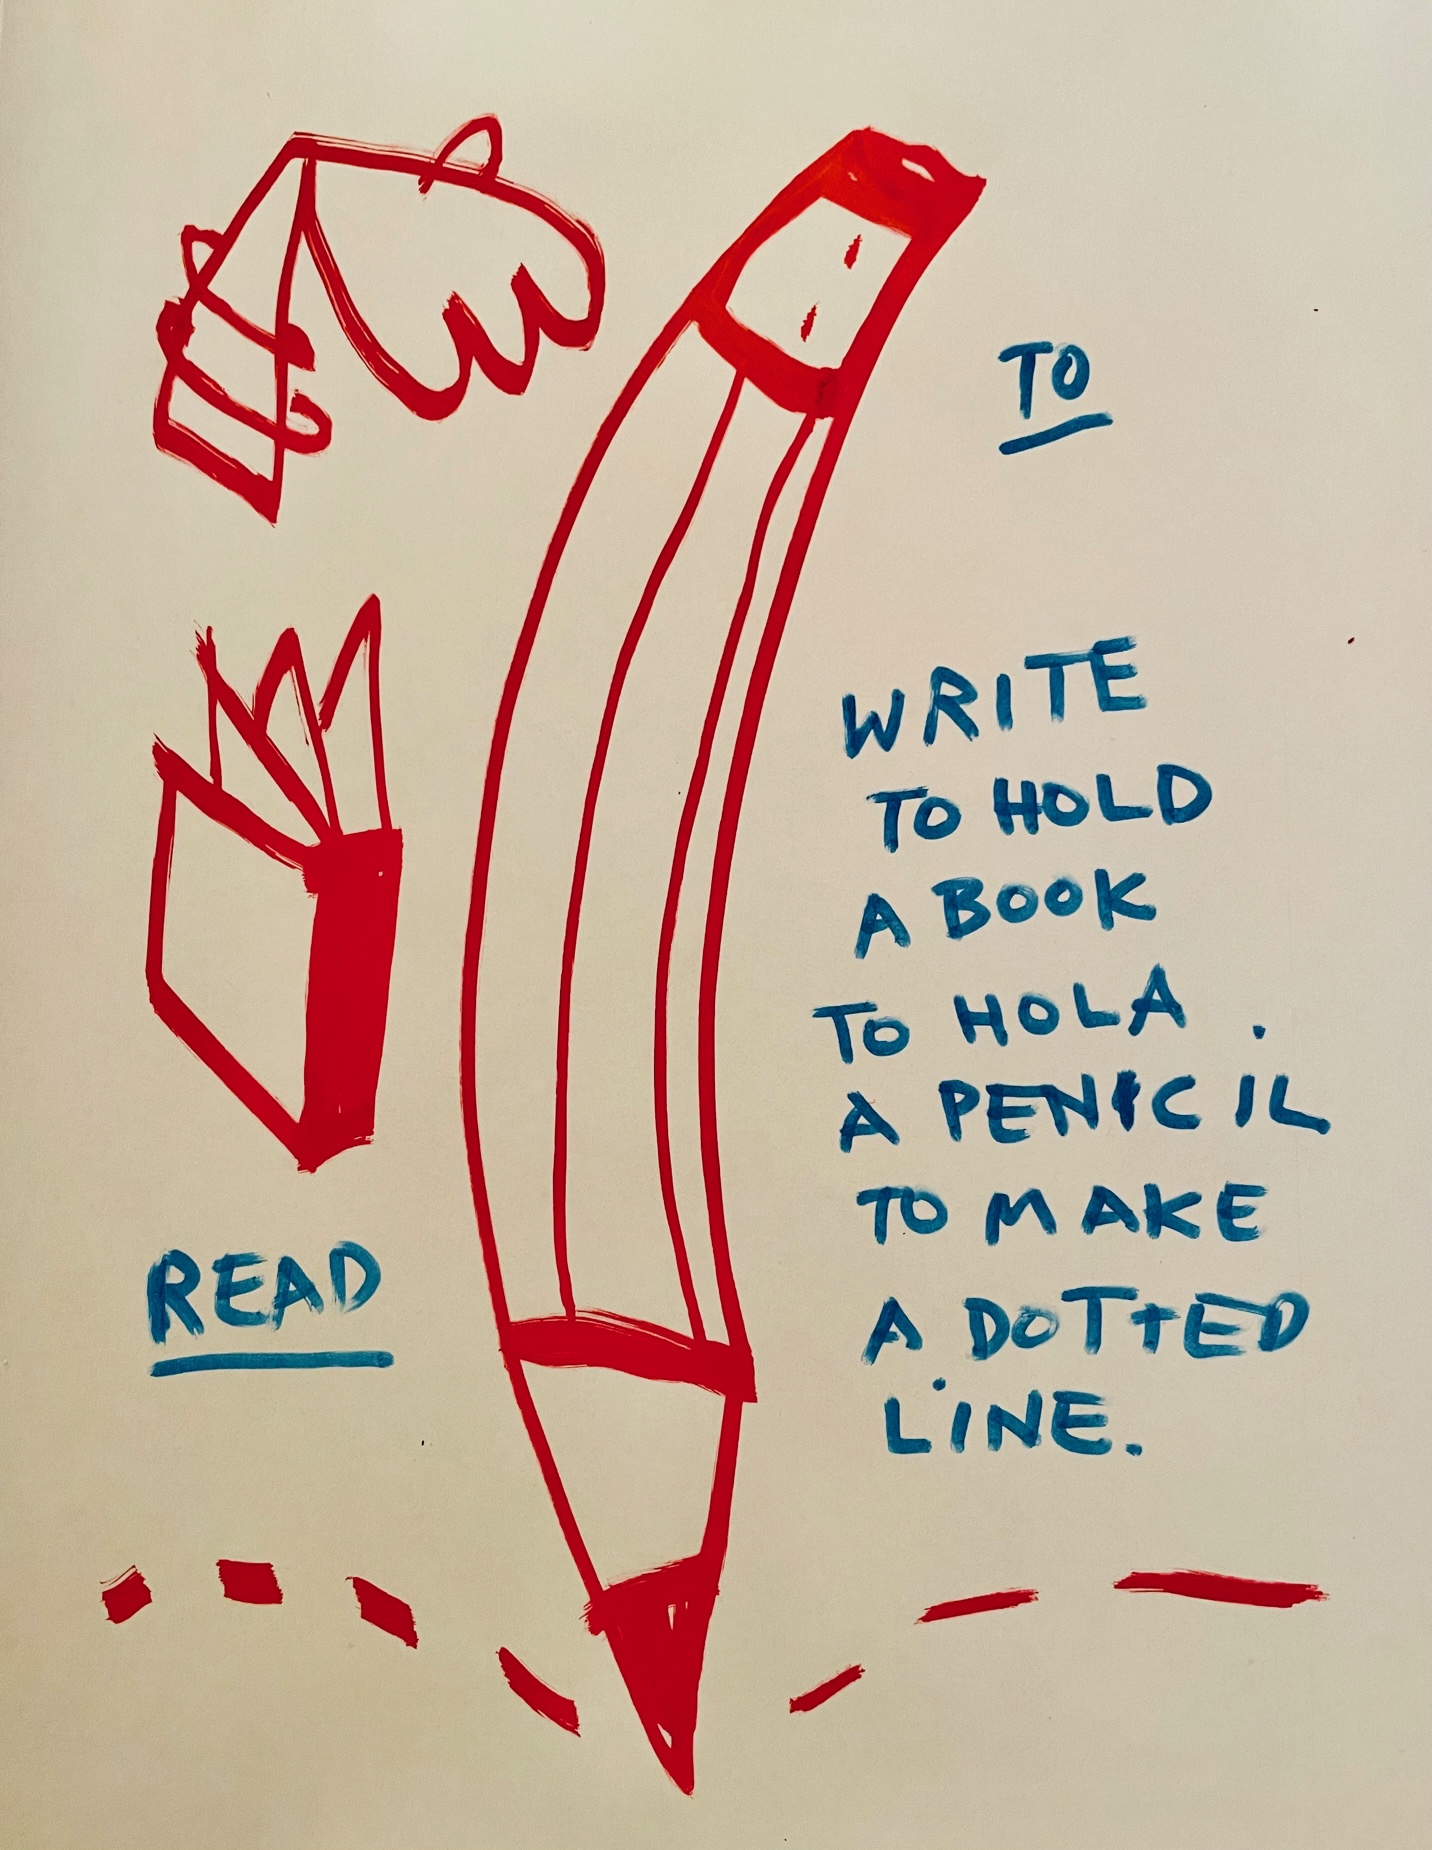 TO
WRITE
TO HOLD
A BOOK
TO HOLA .
A PENCIL
TO MAKE
A DOTTED
LINE.
READ